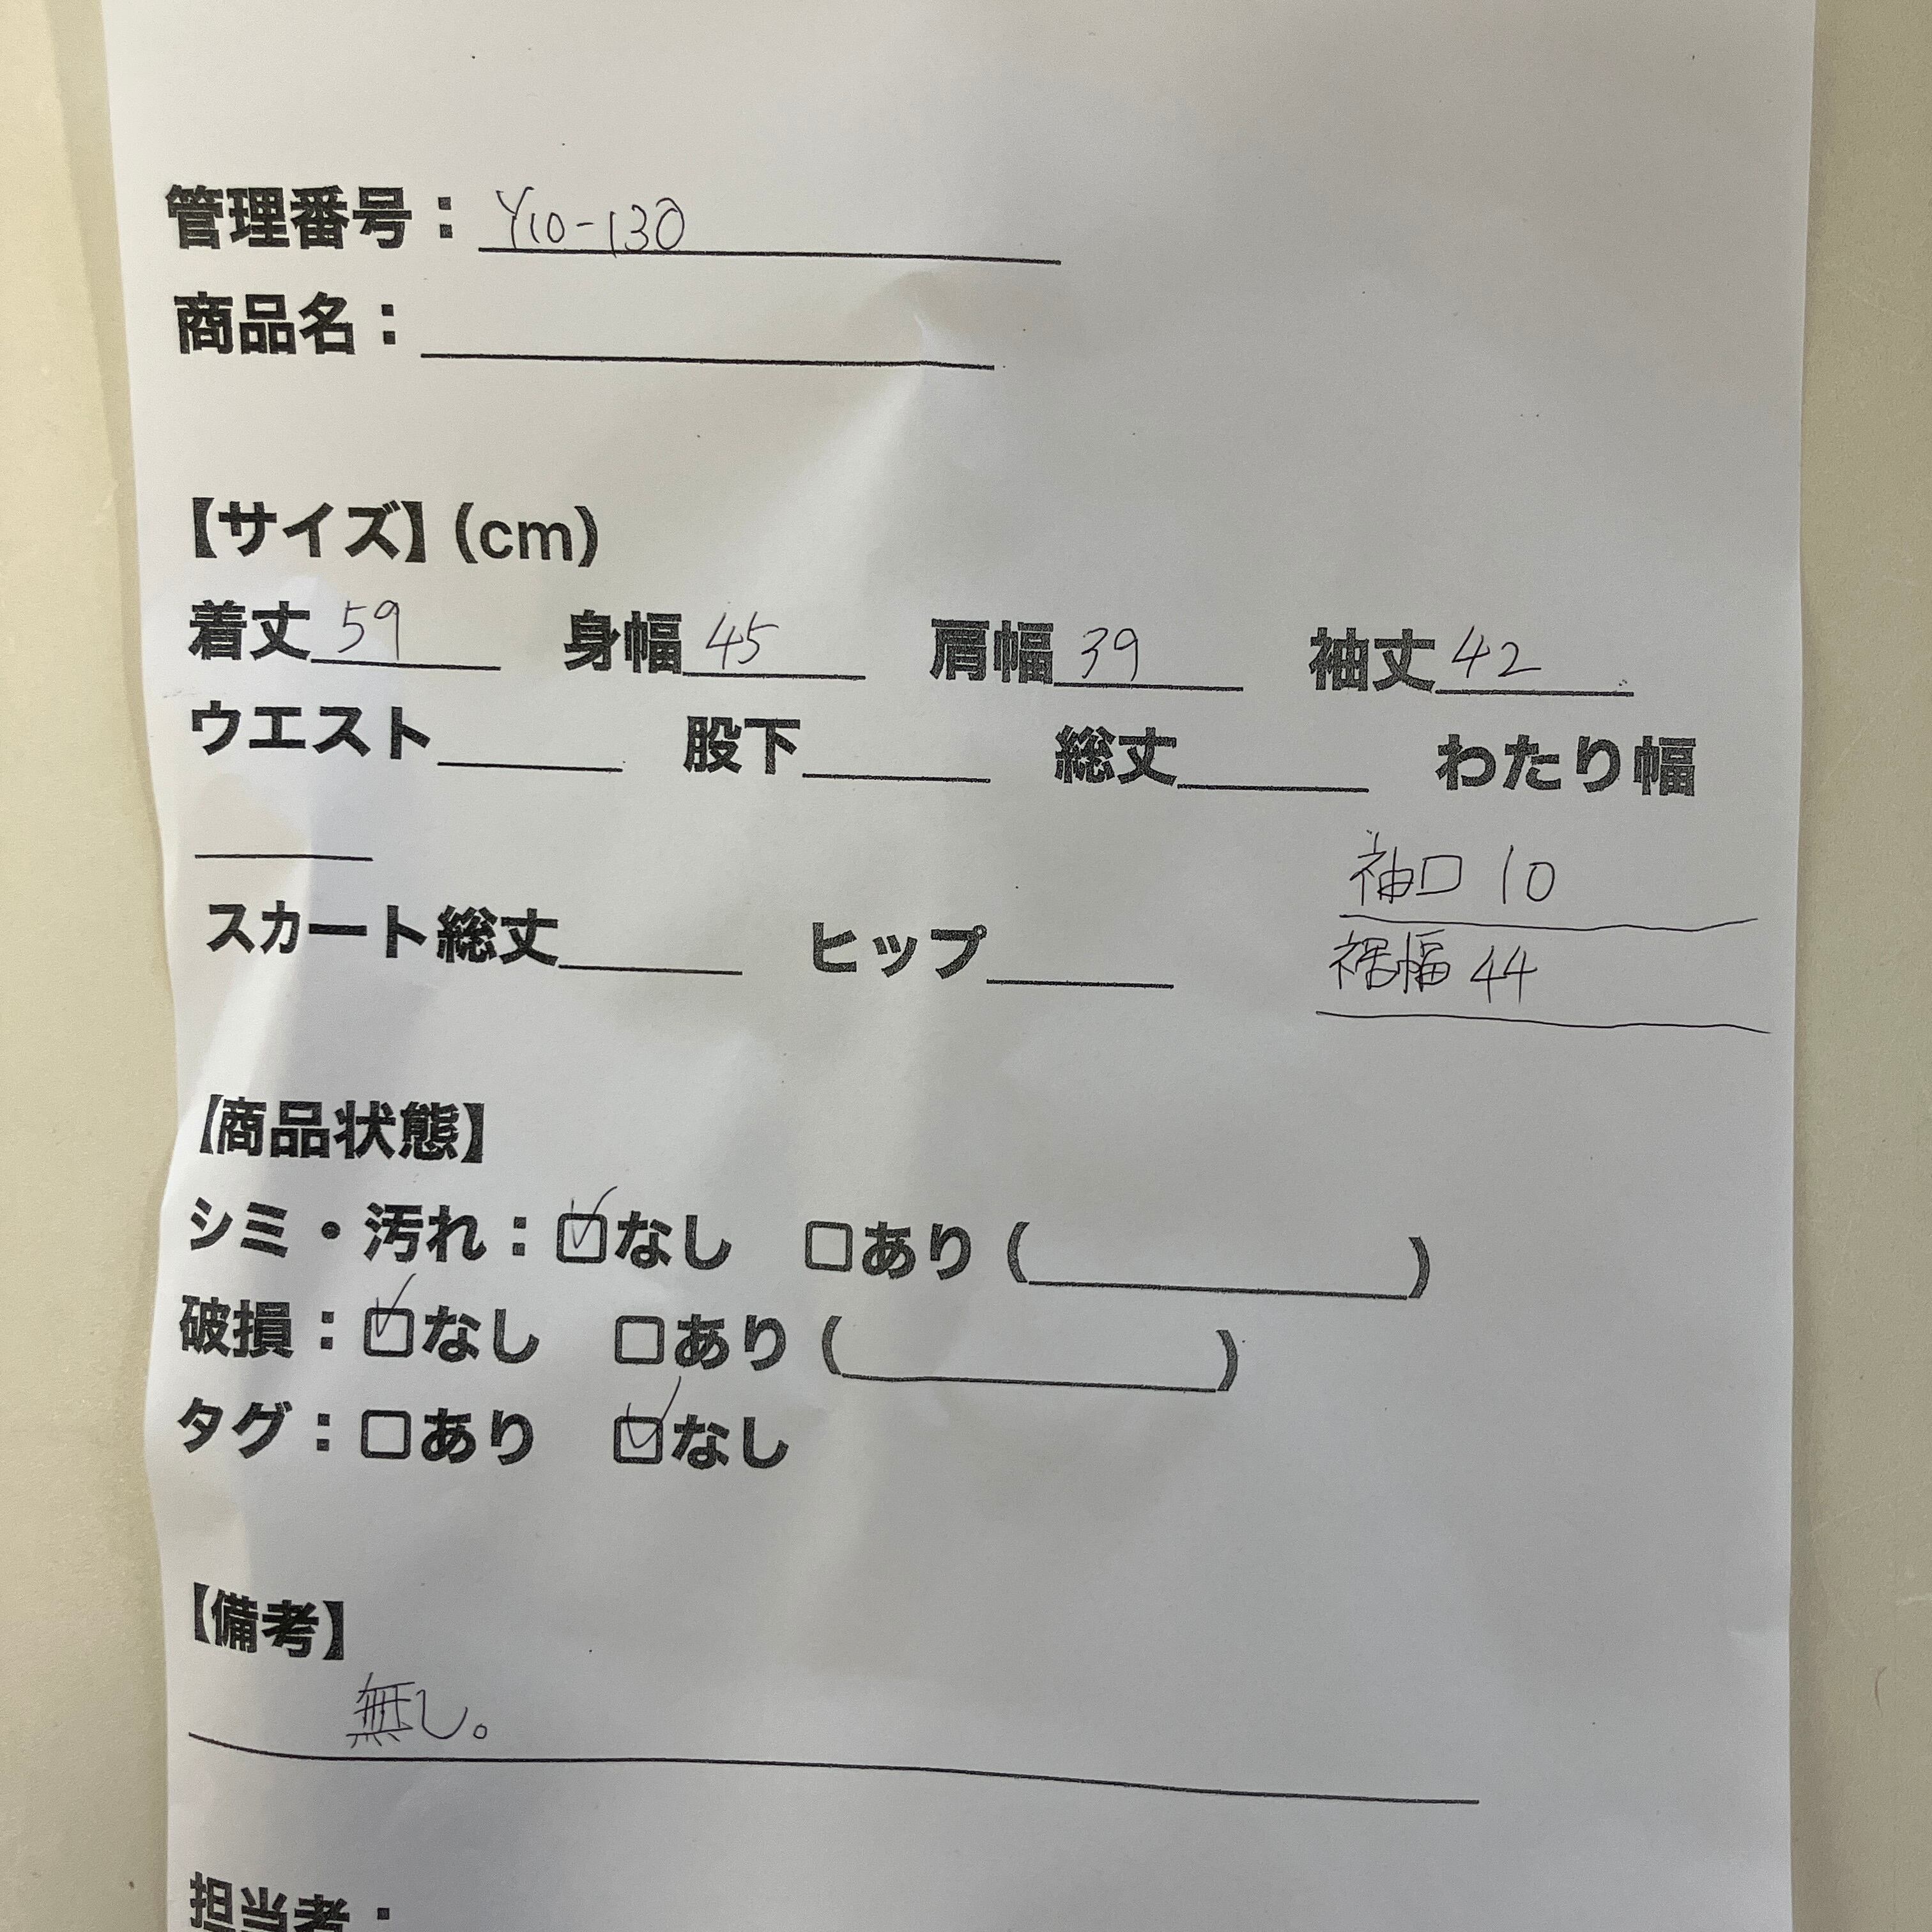 管理番号：Y10-130
商品名：
【サイズ】(cm)
着丈 59 身幅 45 肩幅 39 袖丈 42
ウエスト 股下 総丈 わたり幅
袖口 10
スカート総丈 ヒップ
裾幅 44
【商品状態】
シミ・汚れ：☑なし □あり ( )
破損：☑なし □あり ( )
タグ：□あり ☑なし
【備考】
無し。
担当者：